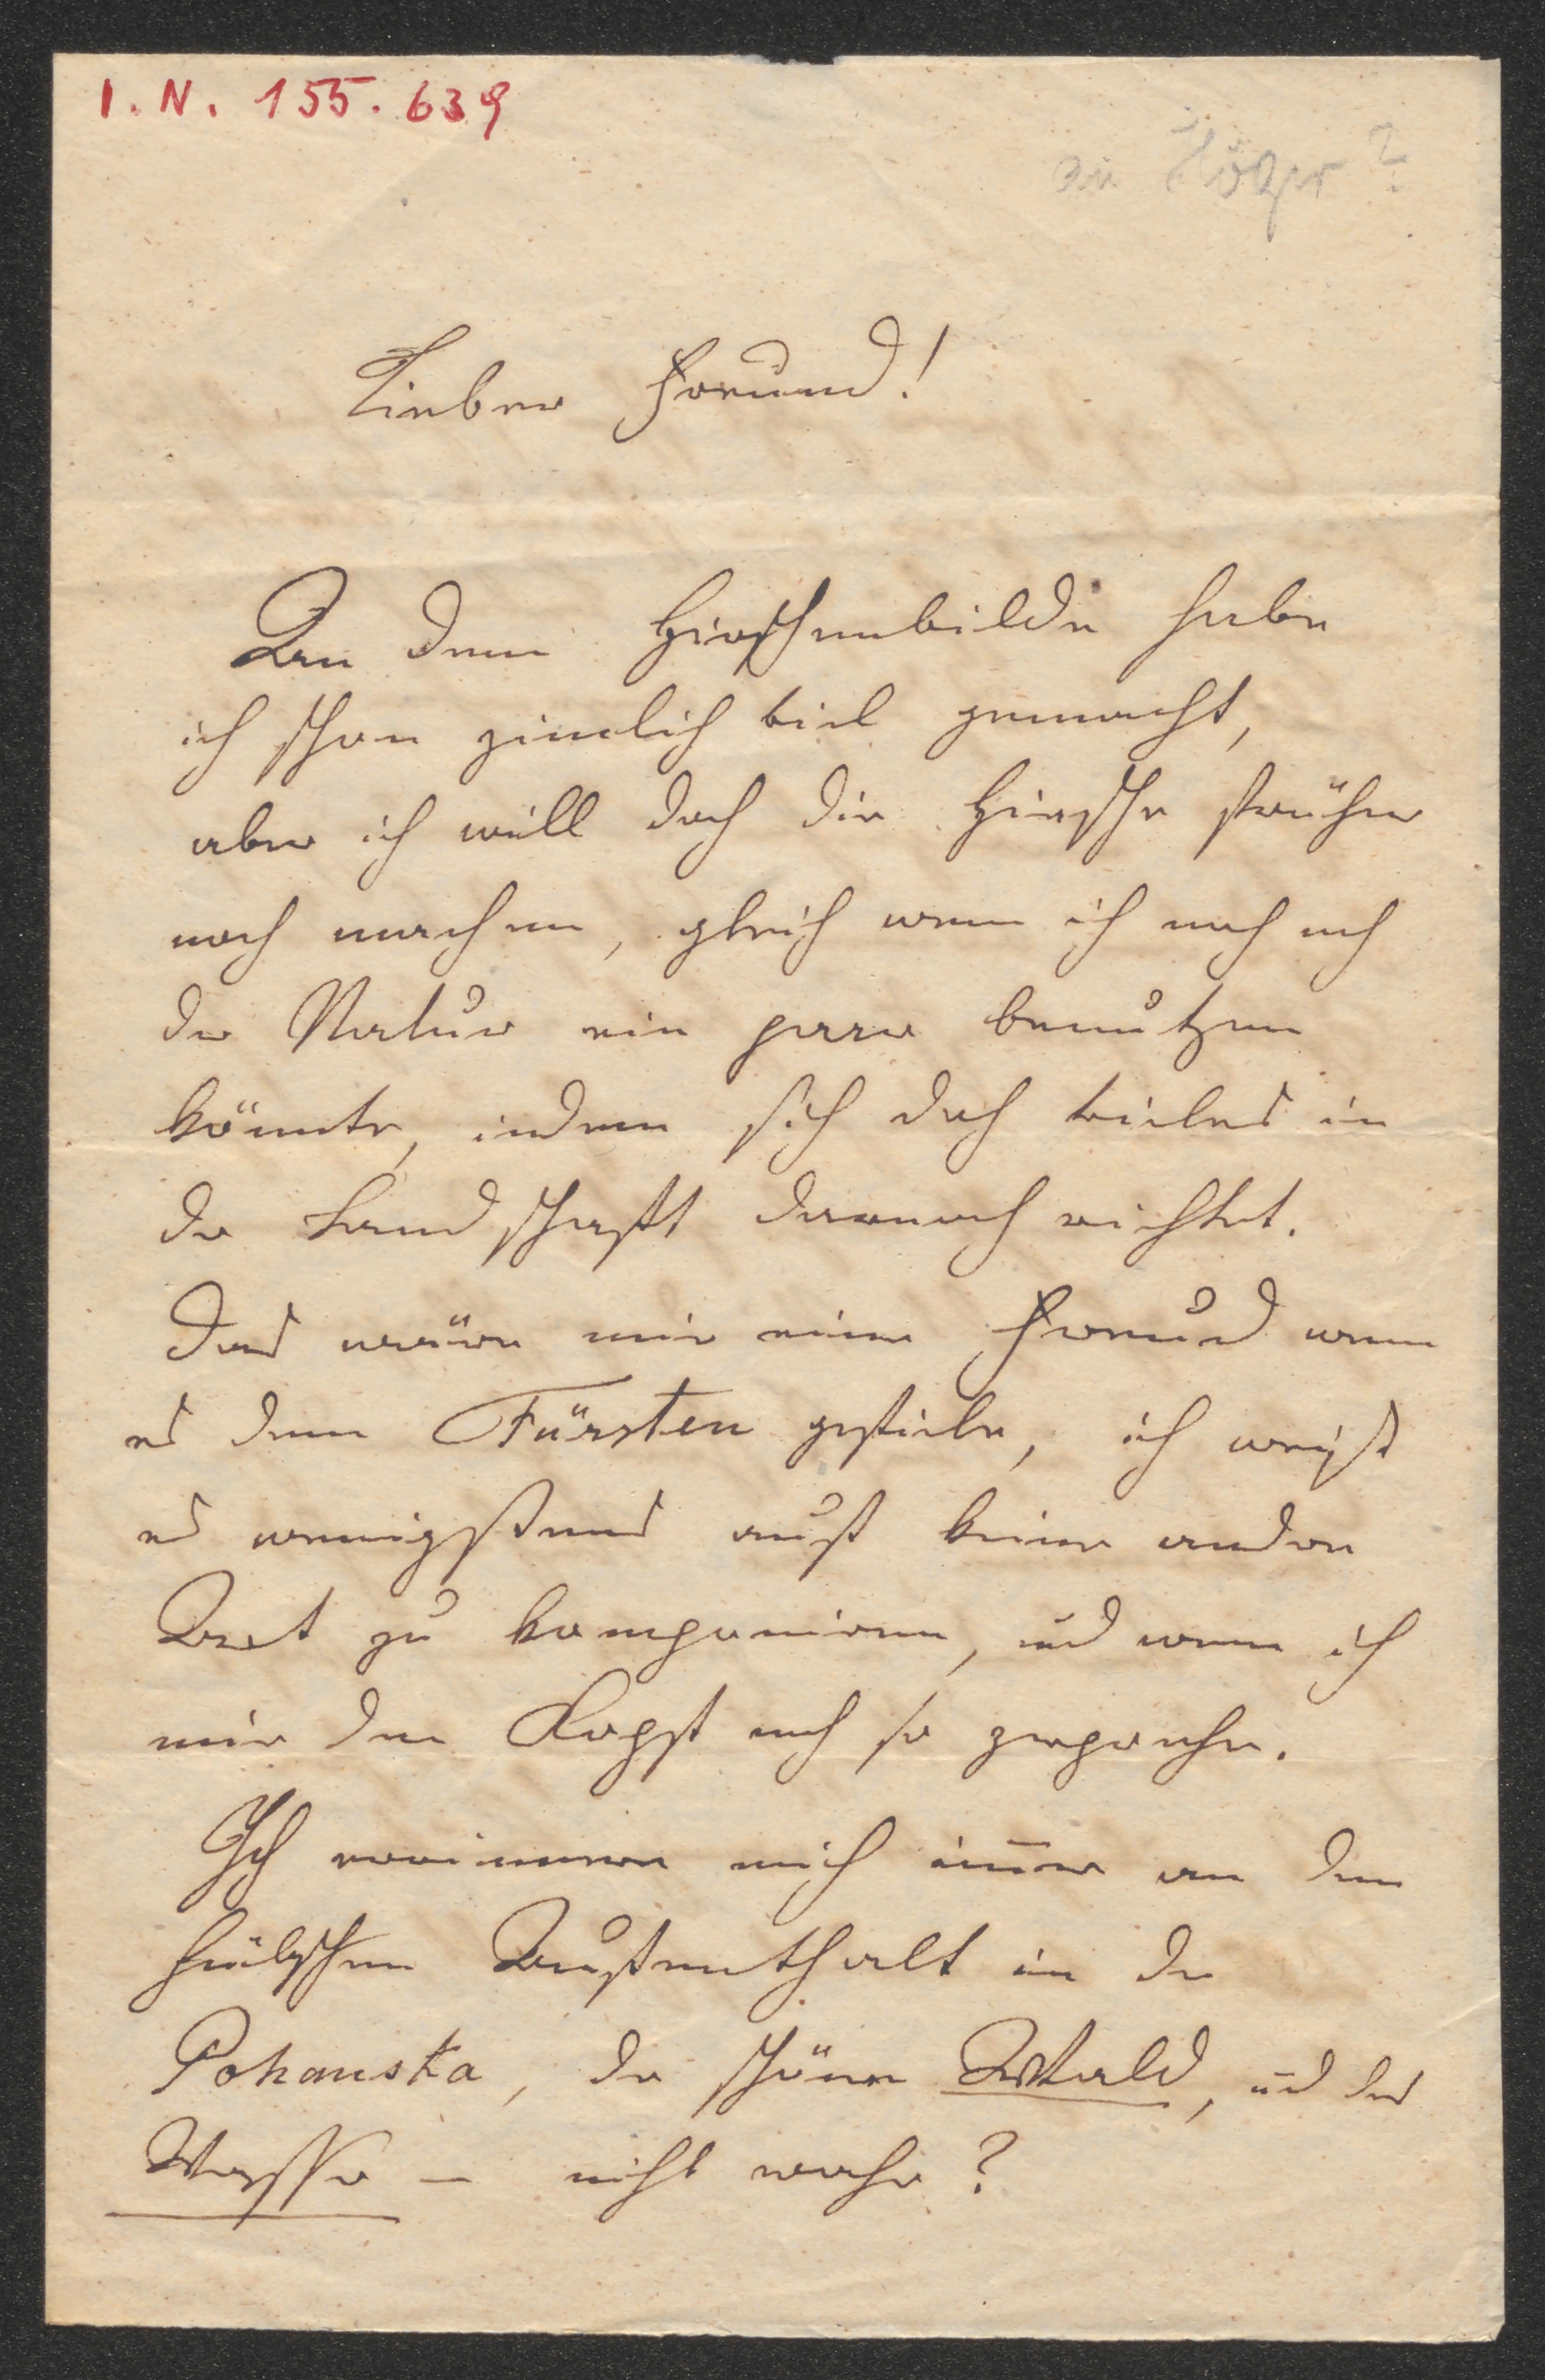 I. N. 155.639
an Höger?
Lieber Freund!
An dem Hirschenbilde habe
ich schon zimlich viel gemacht,
aber ich will doch die Hirsche früher
noch machen, gleich wenn ich noch nach
der Natur ein paar benutzen
könnte, indem sich doch vieles in
der Landschaft darnach richtet.
Das wäre mir eine Freud wenn
es dem Fürsten gefiele, ich weiß
es wenigstens auf keine andere
Art zu komponieren, und wenn ich
mir den Kopf noch so zerpreche.
Ich erinnere mich im̅er an den
hübschen Aufenthalt in der
Pohanska, der schöne Wald, u̅d das
Wasser – nicht wahr?